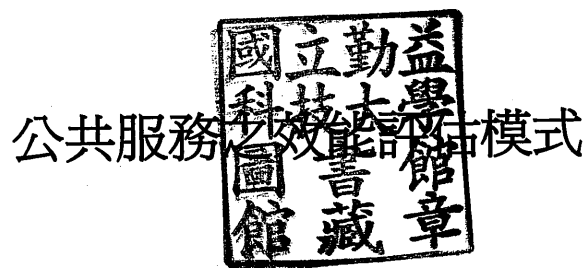 公共服務之效能評估模式
國立勤益
科技大學
圖書館
館藏章